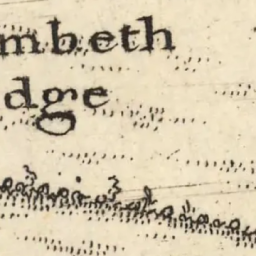 mbeth
dge